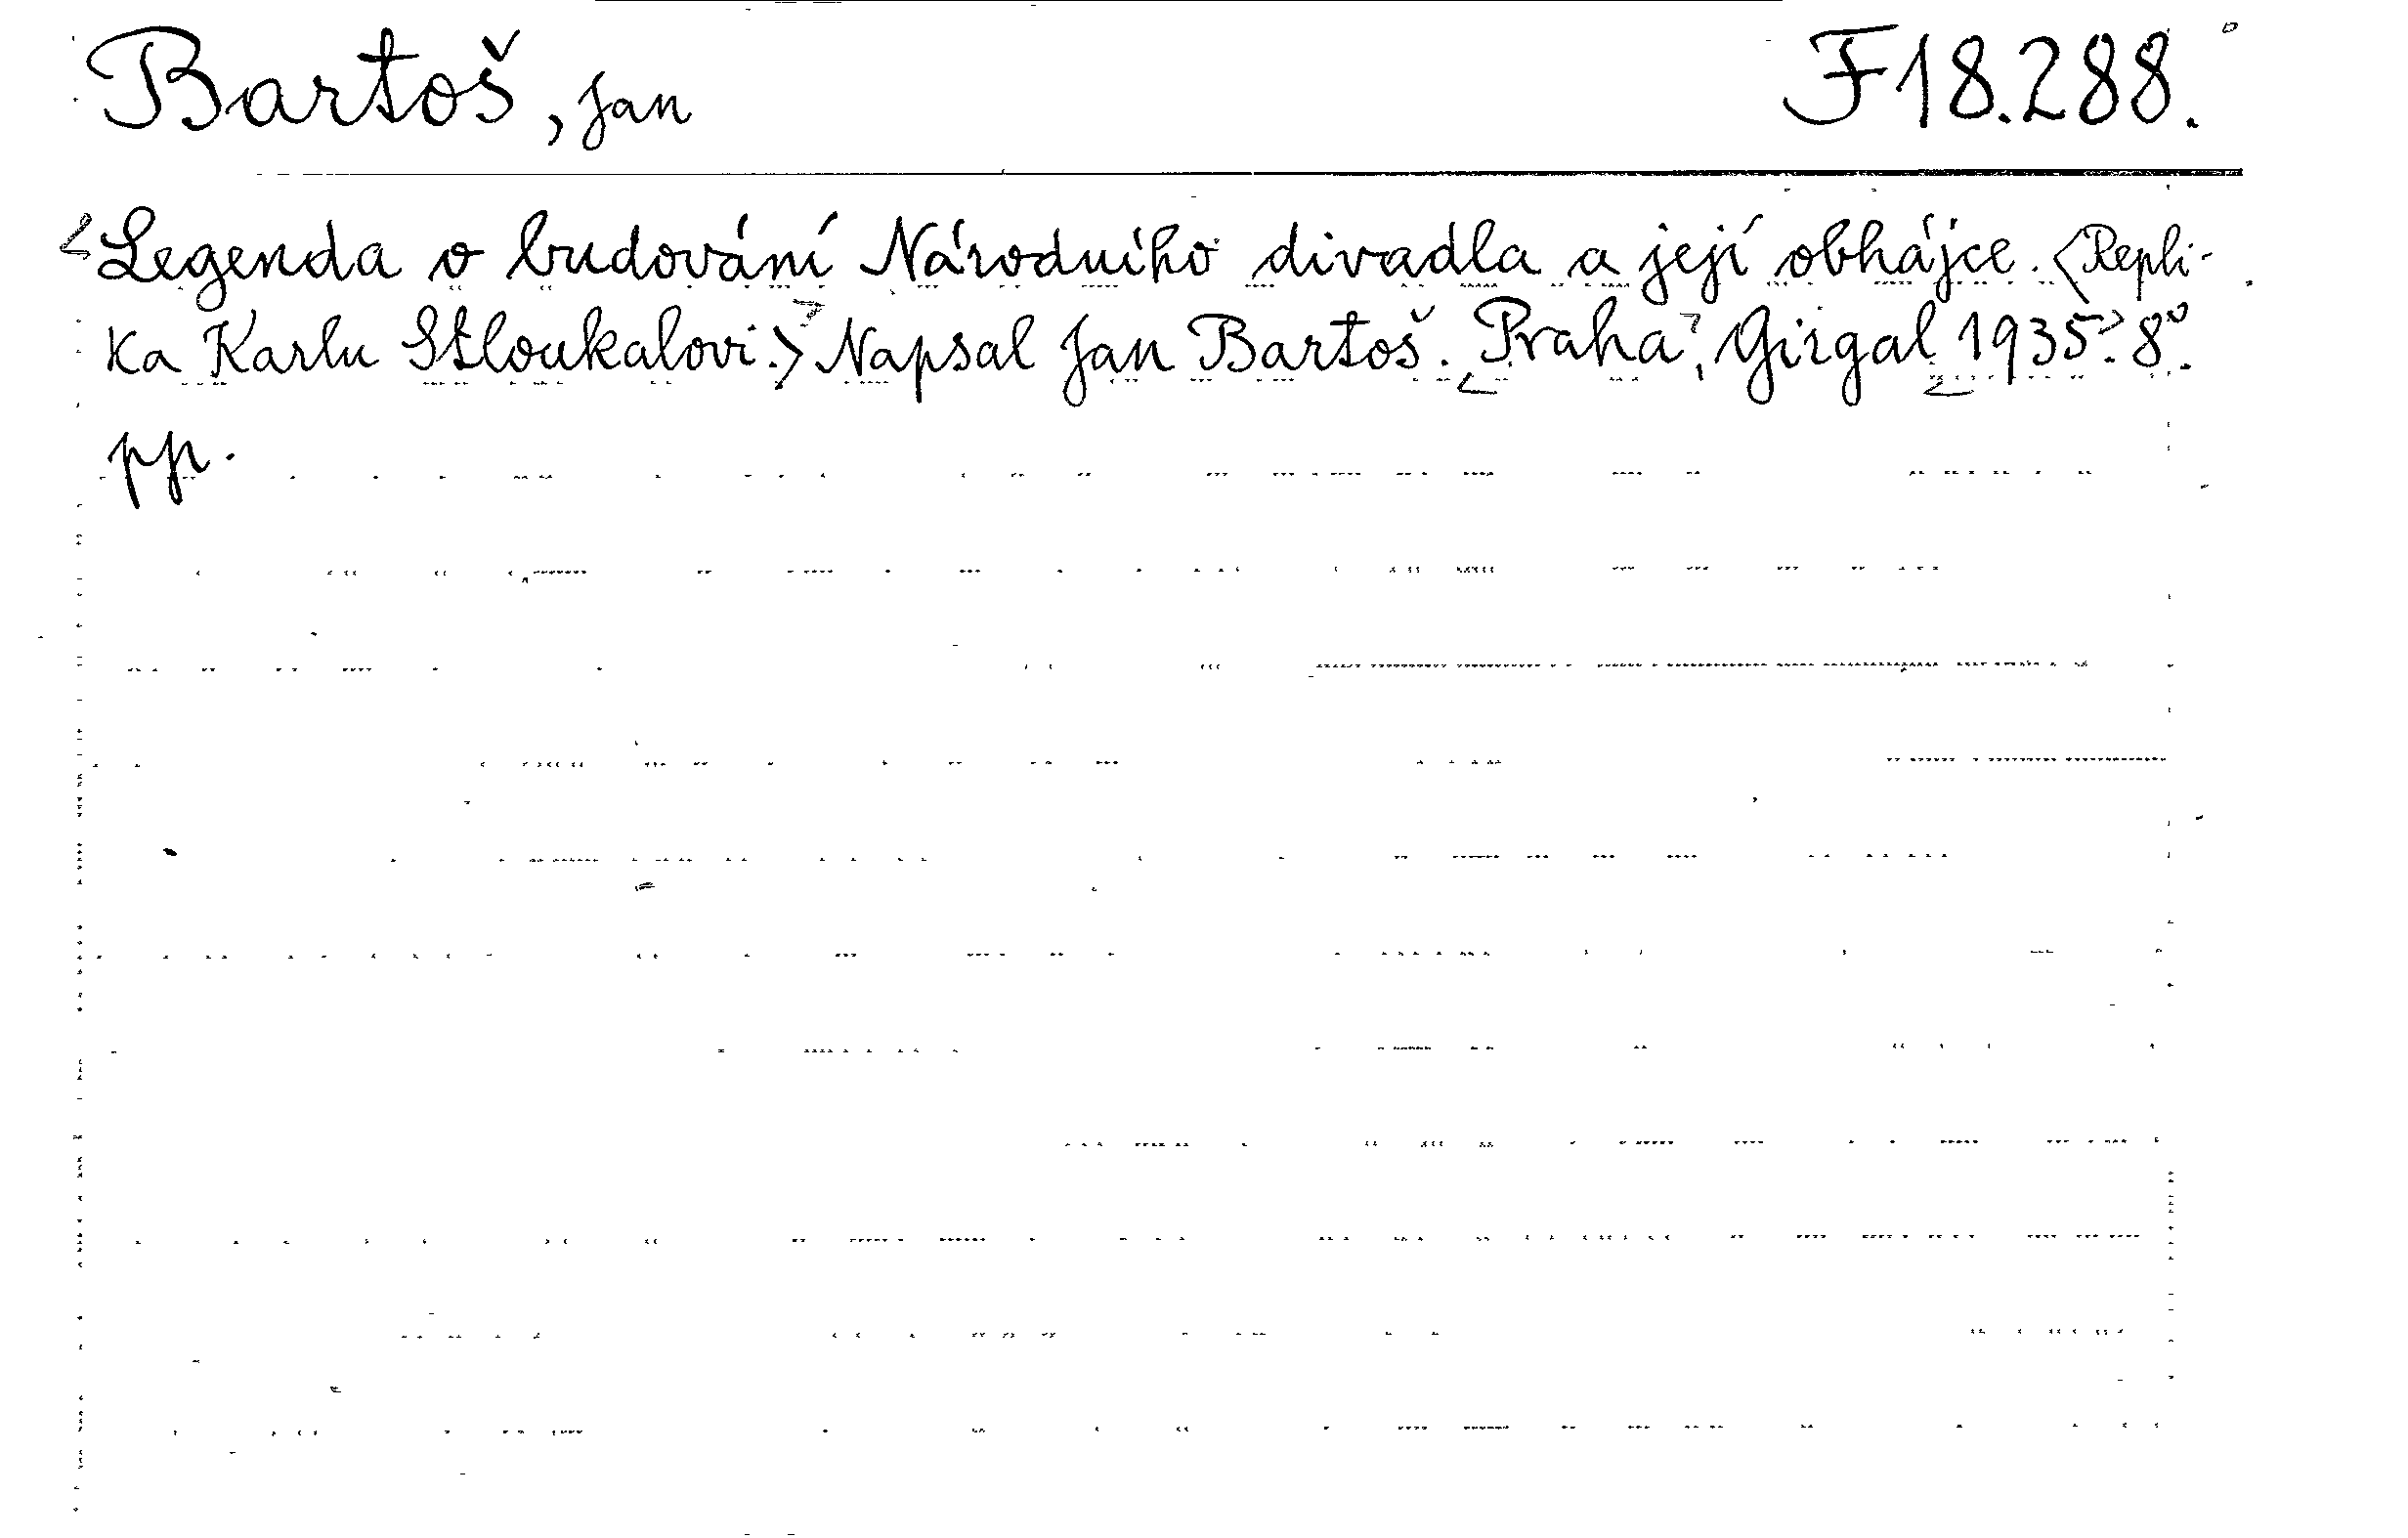 Bartoš, Jan F 18.288.
Legenda o budování Národního divadla a její obhájce. <Repli-
ka Karlu Stloukalovi.> Napsal Jan Bartoš. Praha, Girgal 1935. 8°.
pp.